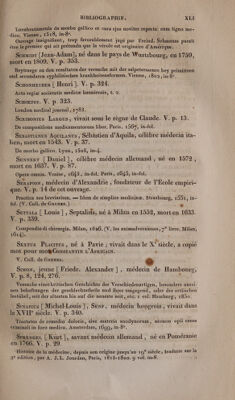 BIBLIOGRAPHIE. XLI
Lucubratiuncula de morbo gallico et cura ejus noviter reperta cum ligno in-
dico. Vienne, 1518, in-8º.
Ouvrage insignifiant, trop favorablement jugé par Freind. Schmaus paraît
être le premier qui ait prétendu que la vérole est originaire d'Amérique.
SCHMIDT [Jean-Adam], né dans le pays de Wurtzbourg, en 1759,
mort en 1809. V. p. 353.
Beytraege zu den resultaten der versuche mit der salpetersauern bey primitiven
und secundaeren syphilitischen krankheitsformen. Vienne, 1802, in-8º.
SCHOENHEIDER [Henri]. V. p. 324.
Acta regiae societatis medicae havniensis, t. 2.
SCHORTUS. V. p. 323.
London medical journal, 1783.
SCRIBONIUS LARGUS, vivait sous le règne de Claude. V. p. 13.
De compositione medicamentorum liber. Paris, 1567, in-fol.
SEBASTIANUS AQUILANUS, Sébastien d'Aquila, célèbre médecin ita-
lien, mort en 1543. V. p. 37.
De morbo gallico. Lyon, 1506, in-4.
SENNERT [Daniel], célèbre médecin allemand, né en 1572,
mort en 1637. V. p. 87.
Opera omnia. Venise, 1641, in-fol. Paris, 1645, in-fol.
SÉRAPION, médecin d'Alexandrie, fondateur de l'École empiri-
que. V. p. 14 de cet ouvrage.
Practica seu breviarium, — liber de simplice medicinae. Strasbourg, 1531, in-
fol. (V. Coll. de GRUNER.)
SETTALA [Louis], Septalius, né à Milan en 1552, mort en 1633.
V. p. 339.
Compendio di chirurgia. Milan, 1646. (V. les animadversiones, 7e livre. Milan,
1614).
SEXTUS PLACITUS, né à Pavie; vivait dans le Xe siècle, a copié
mot pour mot CONSTANTIN L'AFRICAIN.
V. Coll. de GRUNER.
SIMON, jeune [Friede. Alexander], médecin de Hambourg,
V. p. 8, 124, 276.
Versuche einer kritischen Geschichte der Verschiedenartigen, besonders unrei-
nen behaftungen der geschlechtstheile und ihrer umgegend, oder der oertlichen
lustübel, seit der ältesten bis auf die neueste zeit, etc. 1 vol. Hambourg, 1830.
SINAPIUS [Michel-Louis], Sénf, médecin hongrois, vivait dans
le XVIIe siècle. V. p. 340.
Tractatus de remedio doloris, sive materia anodynorum, necnon opii causa
criminali in foro medico. Amsterdam, 1699, in-8º.
SPRENGEL [Kurt], savant médecin allemand, né en Poméranie
en 1766. V. p. 29
Histoire de la médecine, depuis son origine jusqu'au 19e siècle, traduite sur la
2e édition, par A. J. L. Jourdan, Paris, 1815-1820. 9 vol. in-8.